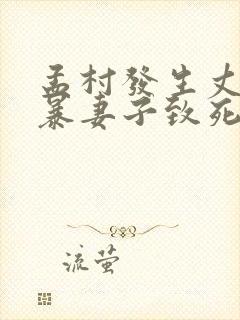 孟村發生丈
暴妻子致死
流萤